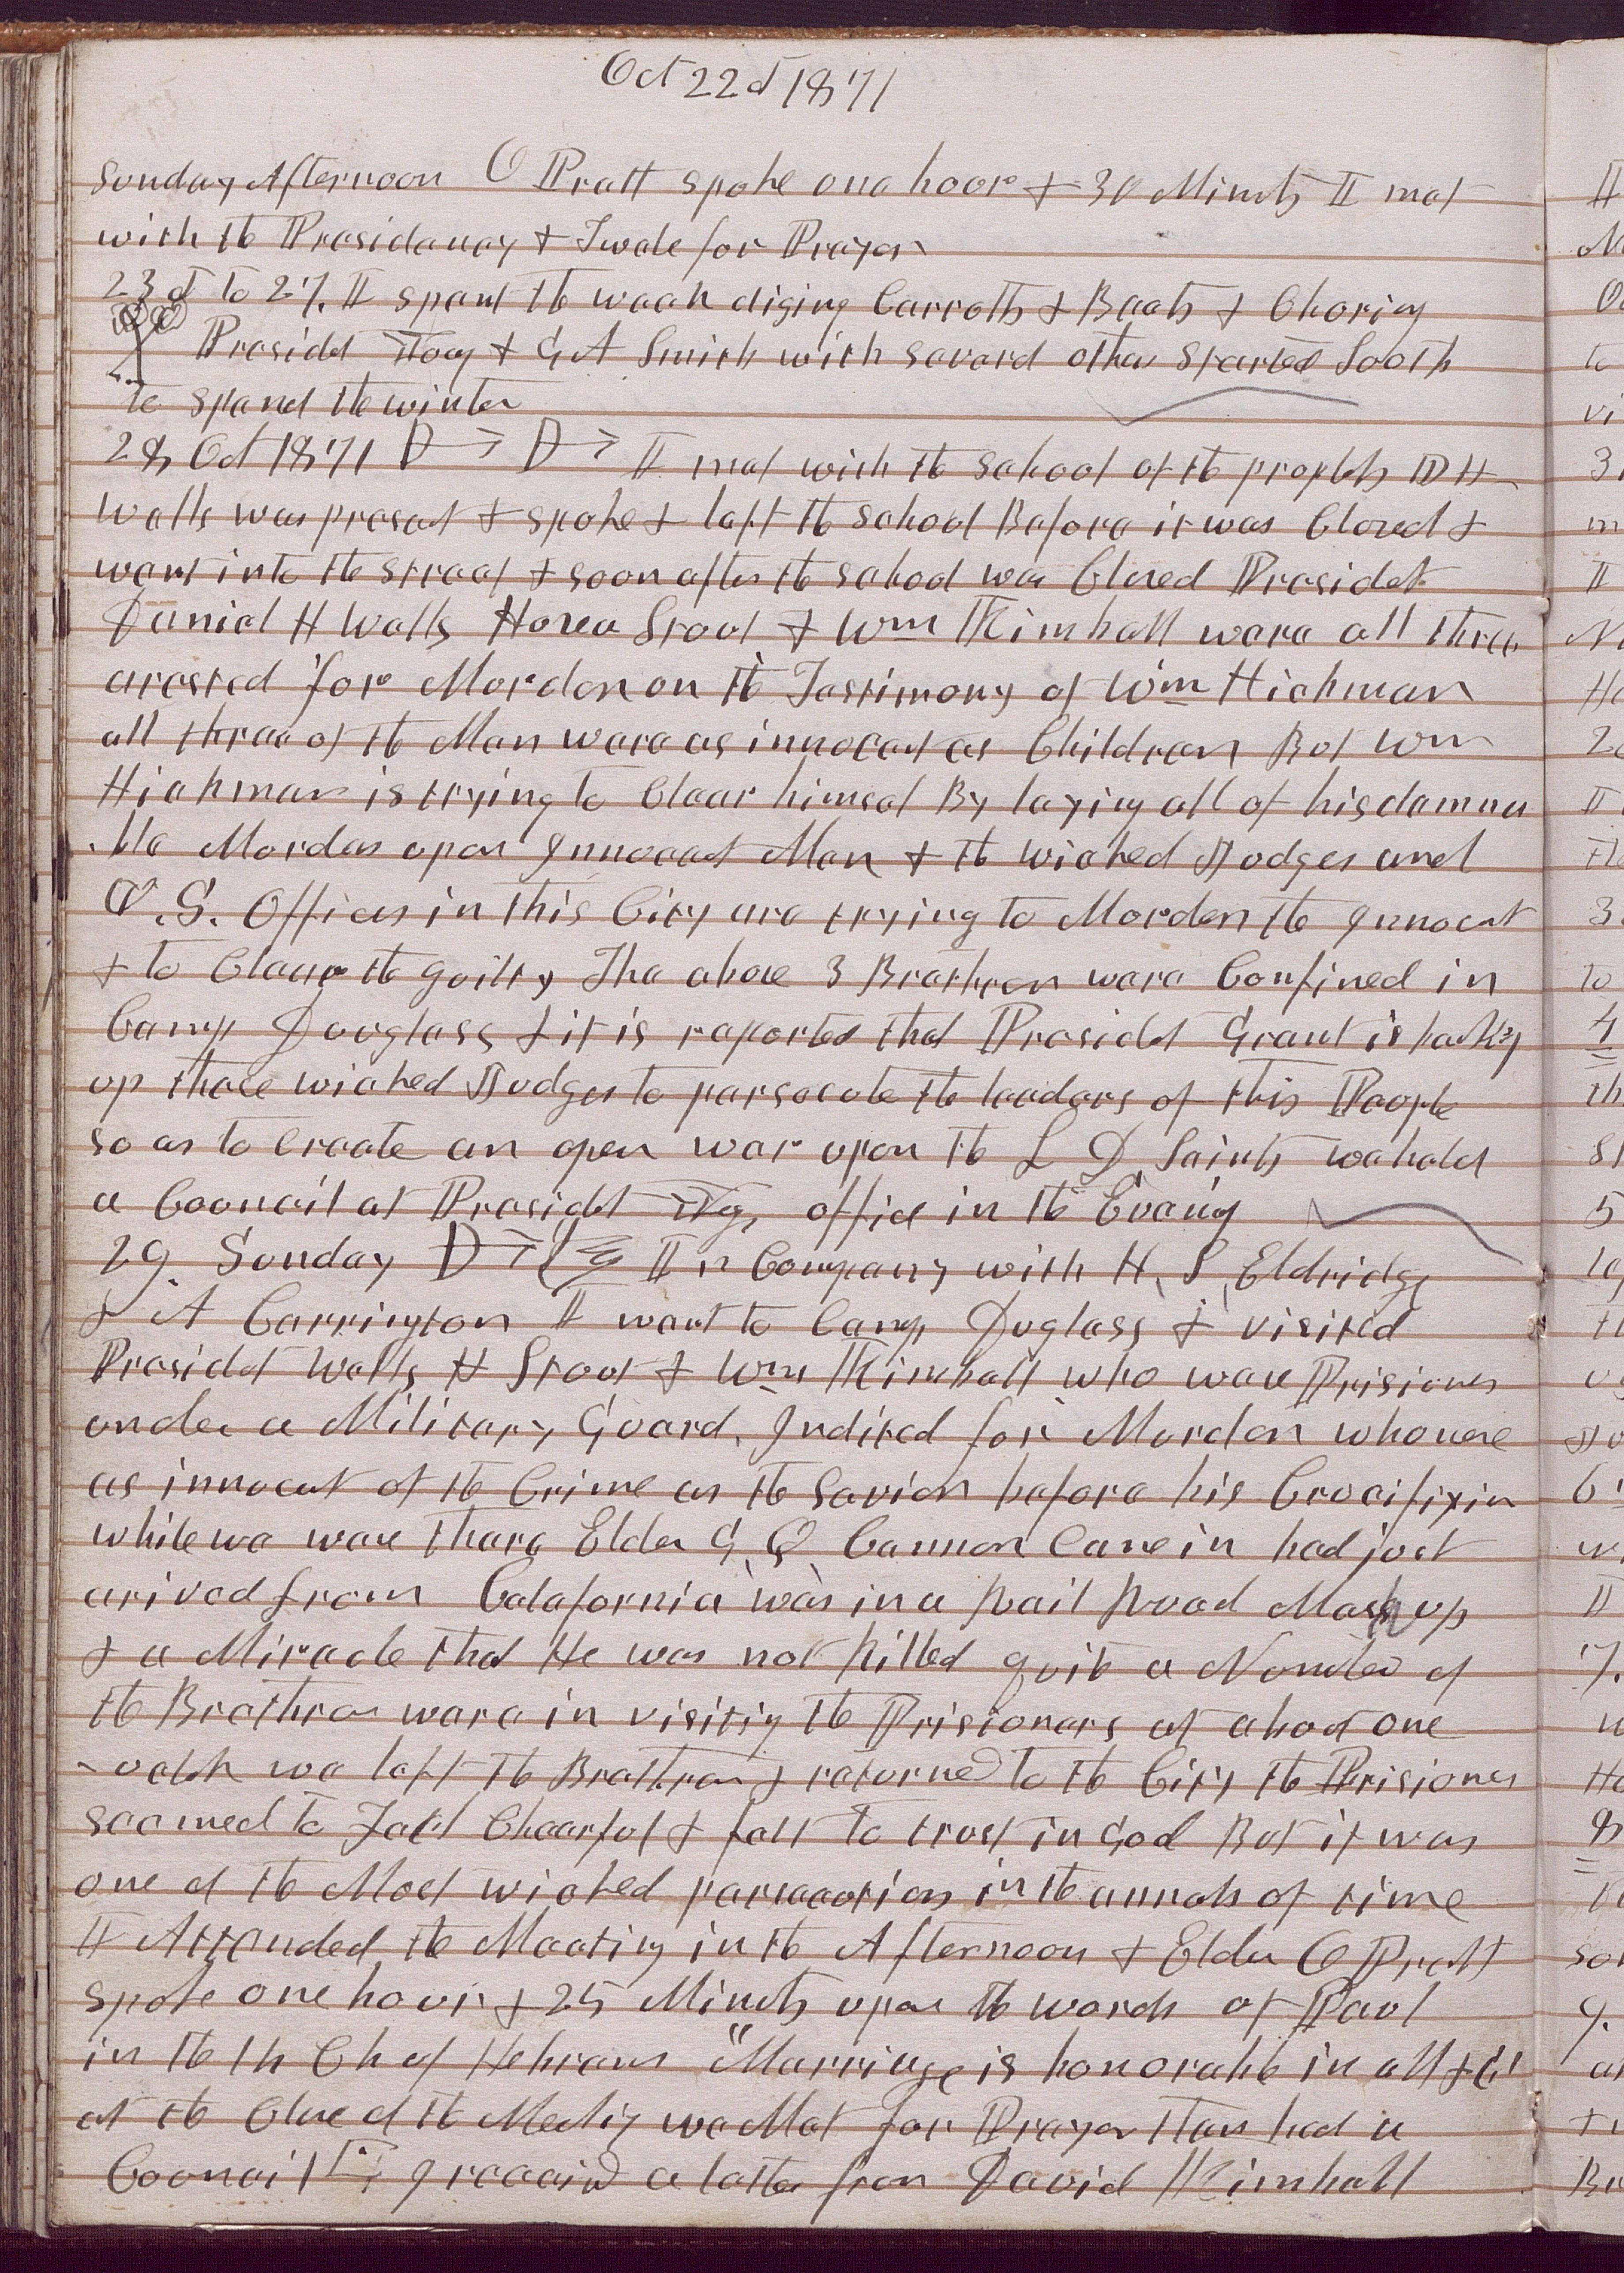 Oct 22d 1871
Sunday Afternoon O Pratt spoke one hour & 30 Minuts I met
with the Presidency & Twelve for Prayer
23d to 27. I spent the week diging Carrotts & Beets & Choring
Presidet Young & G A Smith with several others started South
to spend the winter
28 Oct 1871 I met with the School of the prophets D H
Wells was present & spoke & left the school Before it was Closed &
went into the street & soon after the school was Closed Presidet
Daniel H Wells Hosea Stout & Wm Kimball were all three
arested for Murder on the Testimony of Wm Hickman
all three of the Men were as innocent as Children But Wm
Hickman is trying to Clear himself By laying all of his damna
ble Murders upon Innocent Men & the wicked Judges and
U.S. Officers in this City are trying to Murder the Innocent
& to Clear the guilty The above 3 Brethren were Confined in
Camp Douglass & it is reported that Presidet Grant is backing
up these wicked Judges to persecute the leaders of this People
so as to Create an open war upon the L D Saints we held
a Council at Presidet Ygs office in the Evening
29. Sunday In Company with H. S. Eldridge
& A Carrington I went to Camp Duglass & visited
Presidet Wells H Stout & Wm Kimball who were Prisioners
under a Military Guard. Indited for Murder who were
as innocent of the Crime as the Savior before his Crucifixion
while we were there Elder G. Q. Cannon Came in had just
arived from Calafornia was in a Rail Road Mash up
& a Miracle that He was not killed quite a Number of
the Brethren were in visiting the Prisioners at about one
oclok we left the Brethren & returned to the City the Prisioners
seemed to Feel Chearful & felt to trust in God But it was
one of the Most wicked persecutions in the annals of time
I Attended the Meeting in the Afternoon & Elder O Pratt
spoke one hour & 25 Minuts upon the words of Paul
in the 14 Ch of Hebrews "Marriage is honorable in all &c"
at the Close of the Meeting we Met for Prayer then had a
Council I receivd a letter from David Kimball